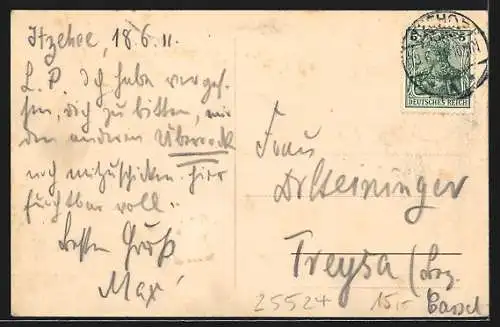 Itzehoe, 18.6.11.
L. P. Ich habe verges-
sen, dich zu bitten, mir
den anderen Überrock
noch mitzuschicken. Hier
furchtbar voll.
Besten Gruß
Max
Frau
Dr Heininger
Treysa (Bez.
Cassel
25524 15,-
DEUTSCHES REICH
5 5